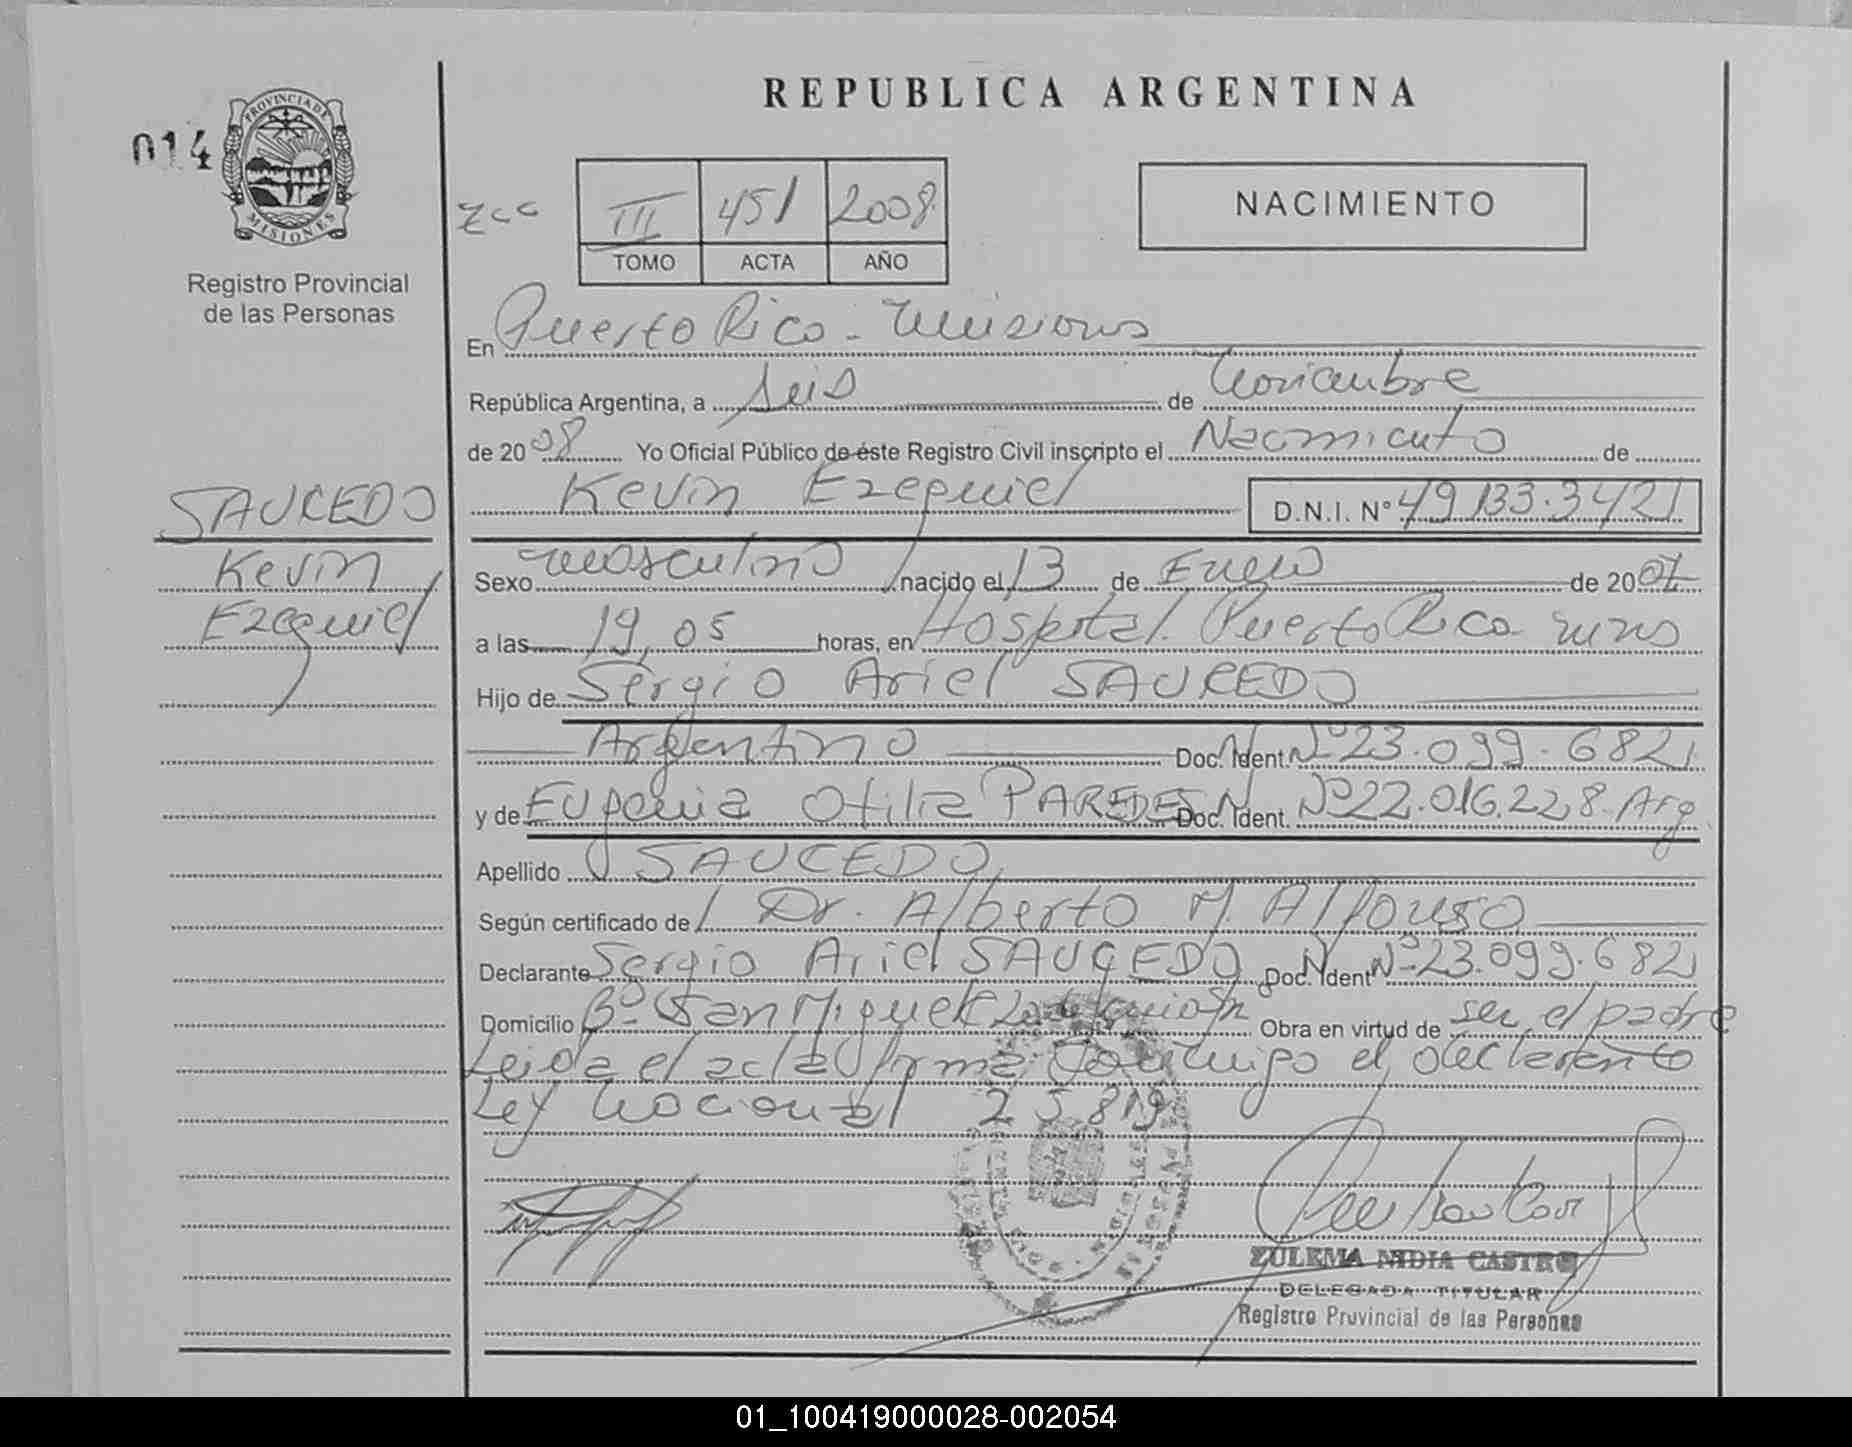 REPUBLICA ARGENTINA
014
PROVINCIA DE
MISIONES
Registro Provincial
de las Personas
zcc
III 451 2008
TOMO ACTA AÑO
NACIMIENTO
En Puerto Rico - Misiones
República Argentina, a seis de Noviembre
de 2008 Yo Oficial Público de éste Registro Civil inscripto el Nacimiento de
SAUCEDO
Kevin Ezequiel D.N.I. N° 49.133.342
Kevin
Ezequiel
Sexo masculino nacido el 13 de Enero de 2007
a las 19,05 horas, en Hospital Puerto Rico
Hijo de Sergio Ariel SAUCEDO
Argentino Doc. Ident. N° 23.099.682
y de Eugenia Otilia PAREDES Doc. Ident. N° 22.016.228 - Arg
Apellido SAUCEDO
Según certificado de Dr. Alberto M. Alfonso
Declarante Sergio Ariel SAUCEDO Doc. Ident N° 23.099.682
Domicilio B° San Miguel Obra en virtud de ser el padre
Leida el acta firma conmigo el declarante
Ley Nacional 25.819
ZULEMA NIDIA CASTRO
DELEGADA TITULAR
Registro Provincial de las Personas
01_100419000028-002054